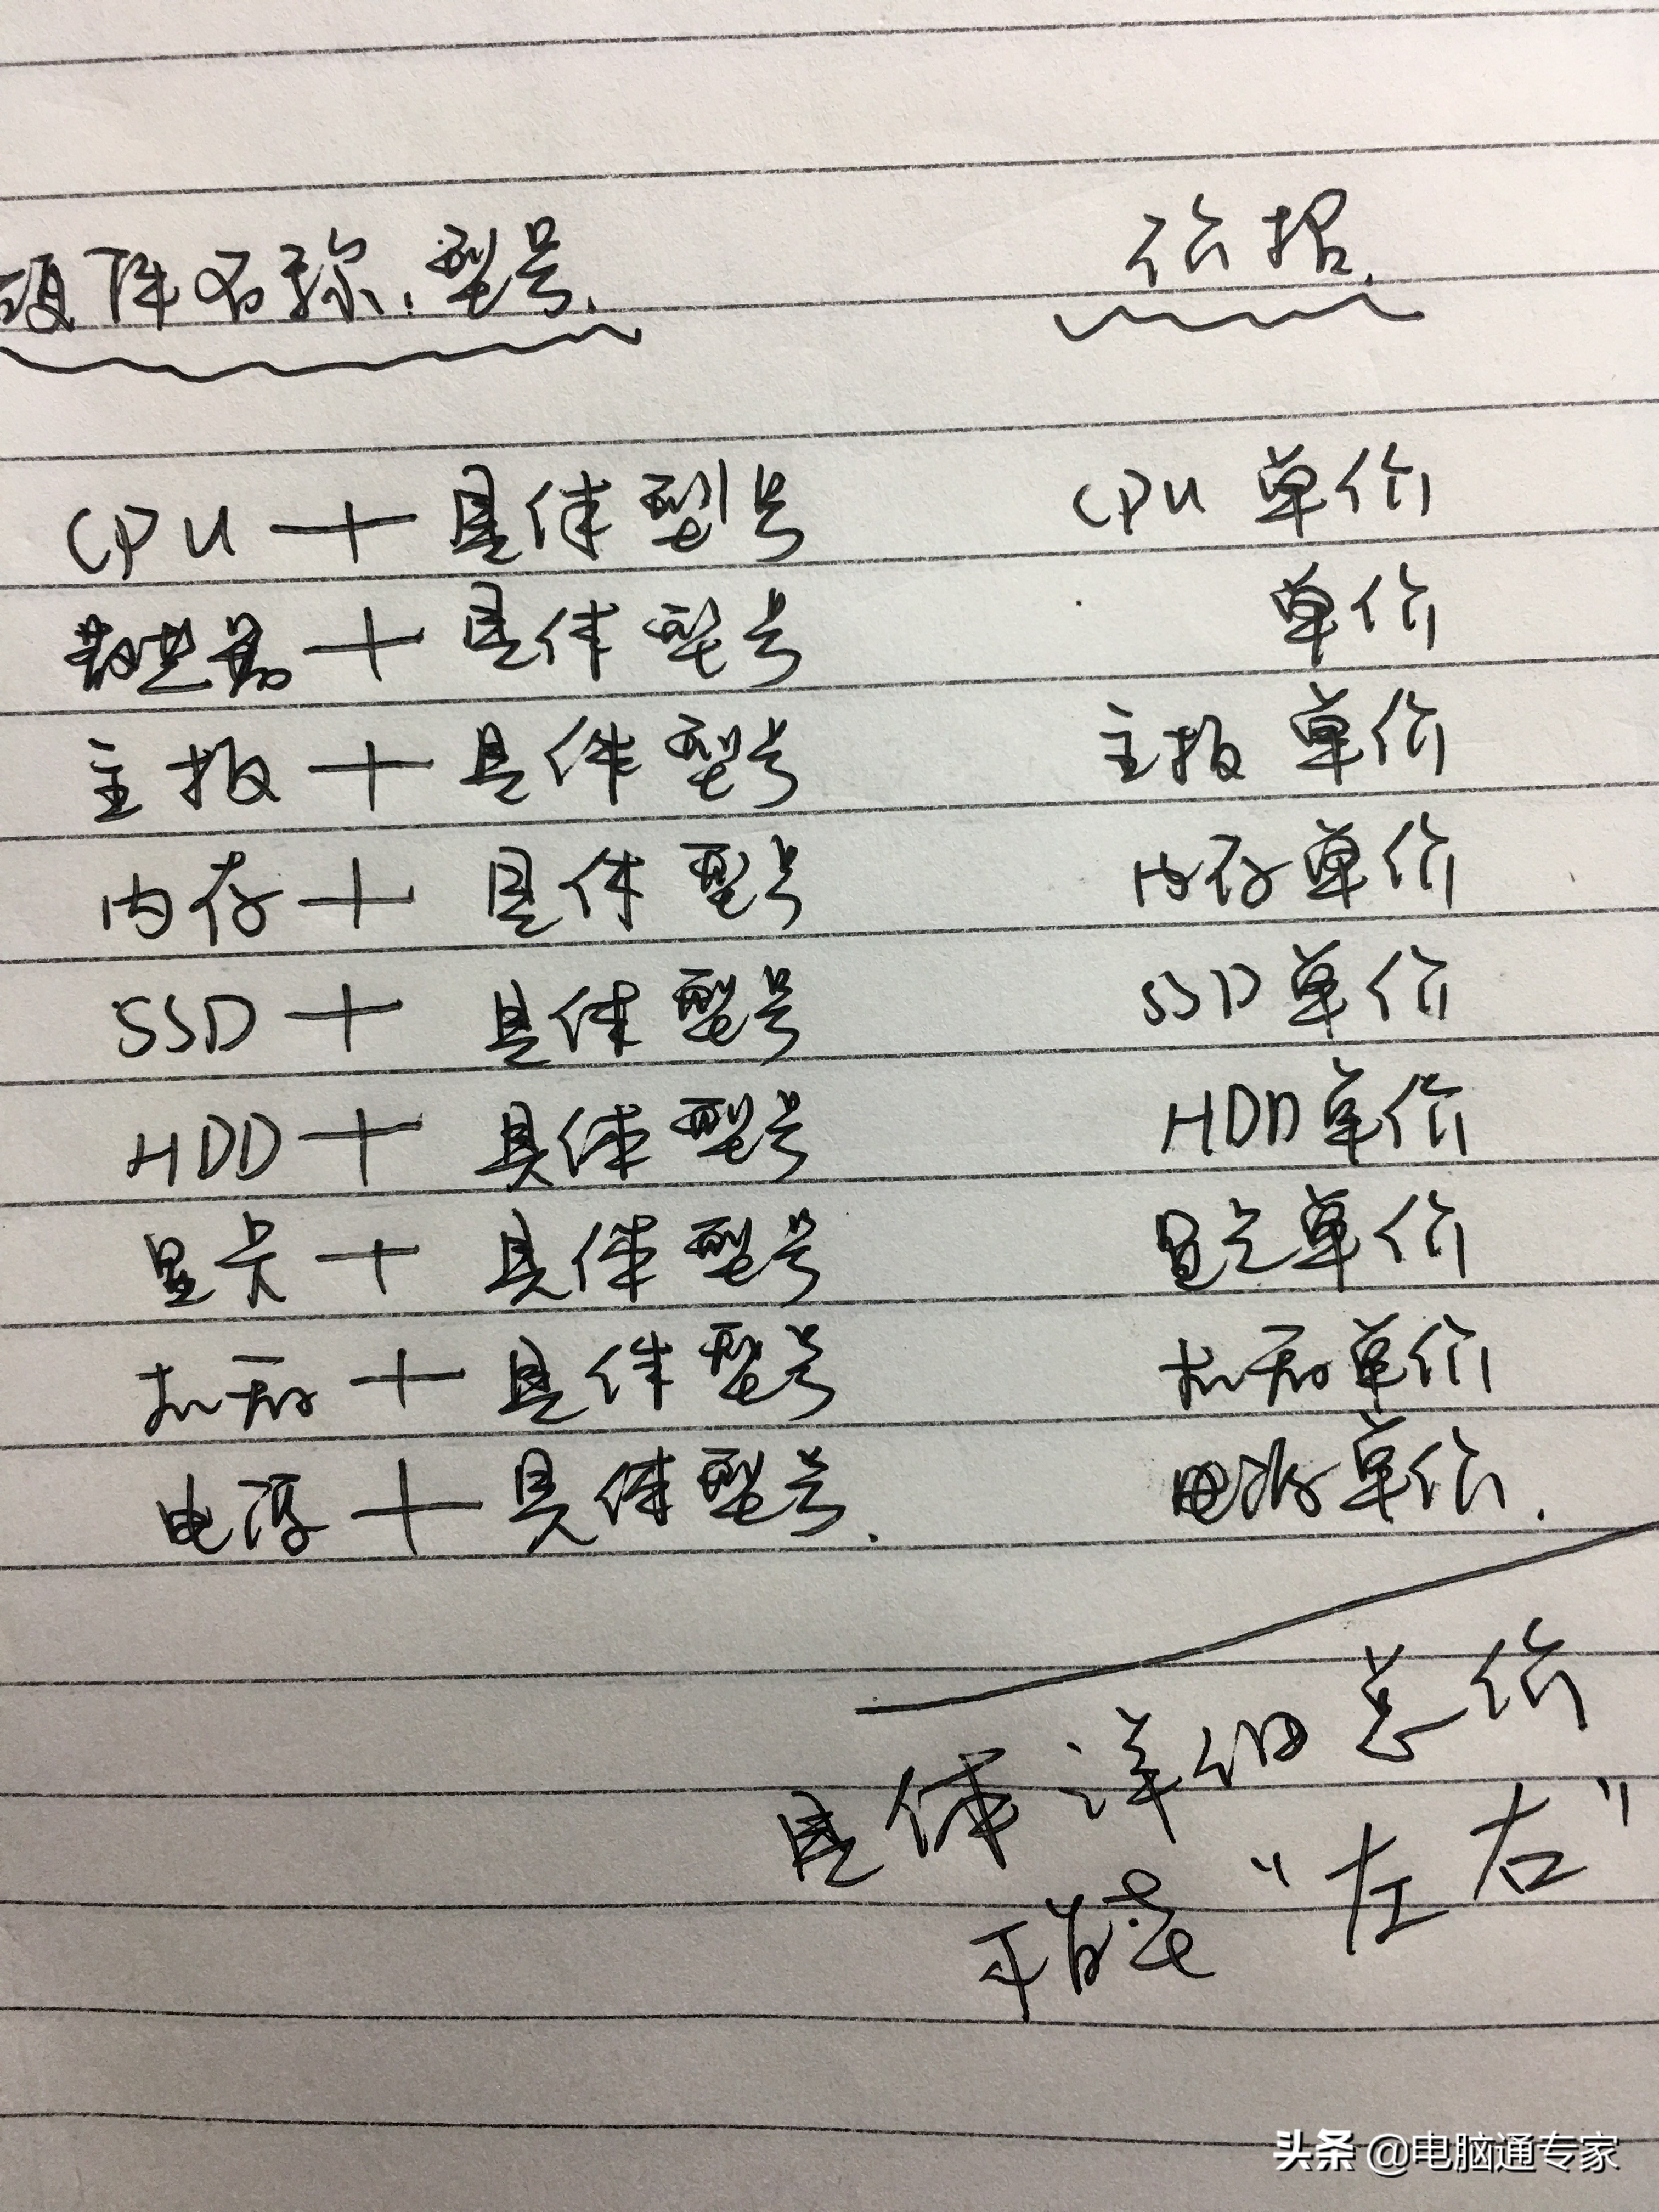 硬件名称:型号. 价格.
CPU + 具体型号 CPU 单价
散热器 + 具体型号 单价
主板 + 具体型号 主板 单价
内存 + 具体型号 内存单价
SSD + 具体型号 SSD单价
HDD + 具体型号 HDD单价
显卡 + 具体型号 显卡单价
机箱 + 具体型号 机箱单价
电源 + 具体型号. 电源单价.
具体详细总价
"左右"
头条 @电脑通专家